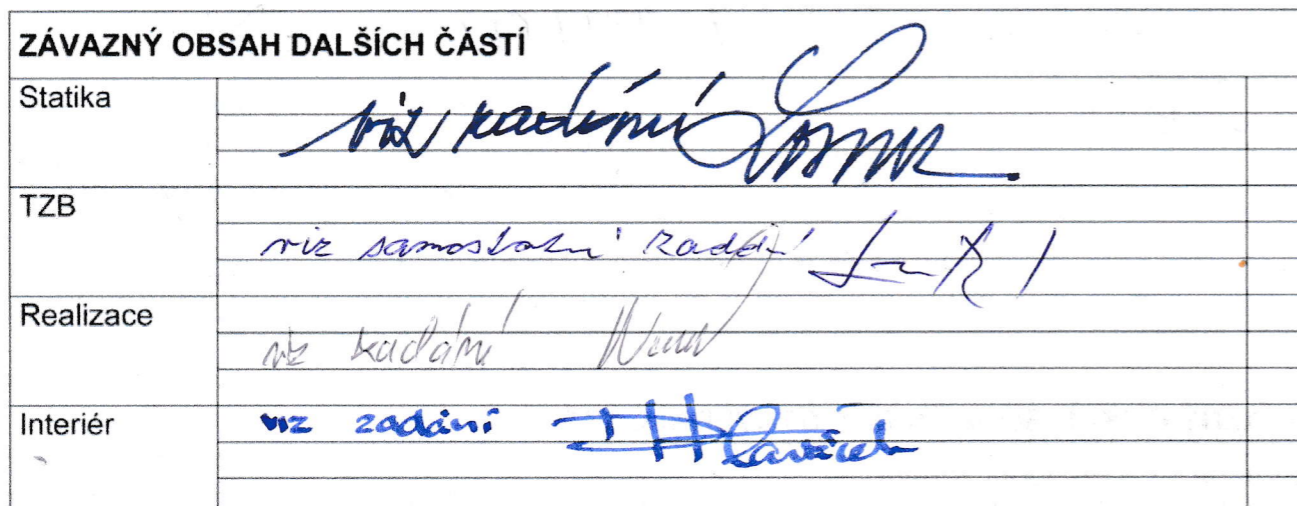 ZÁVAZNÝ OBSAH DALŠÍCH ČÁSTÍ
Statika
viz zadání
TZB
viz samostatní zadání
Realizace
viz zadání
Interiér
viz zadání Hlaváček